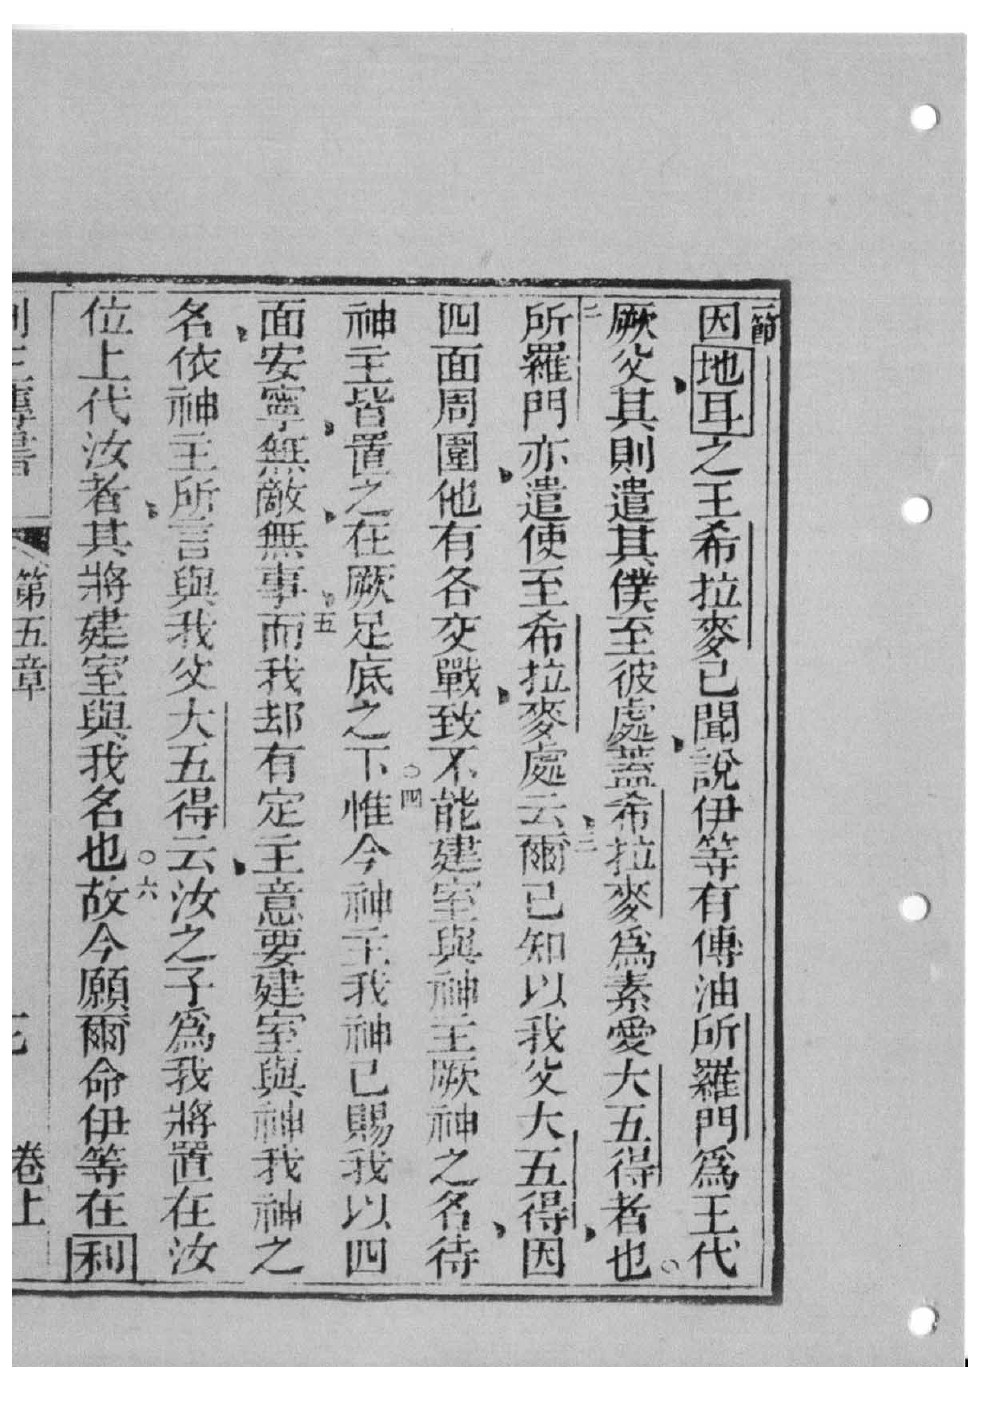 一節
因地耳之王希拉麥已聞說伊等有傳油所羅門爲王代
厥父其則遣其僕至彼處蓋希拉麥爲素愛大五得者也。
二所羅門亦遣使至希拉麥處云三爾已知以我父大五得因
四面周圍他有各交戰致不能建室與神主厥神之名待
神主皆置之在厥足底之下。四惟今神主我神已賜我以四
面安寧無敵無事五而我却有定主意要建室與神我神之
名依神主所言與我父大五得云汝之子爲我將置在汝
位上代汝者其將建室與我名也。六故今願爾命伊等在利
第五章 卷上